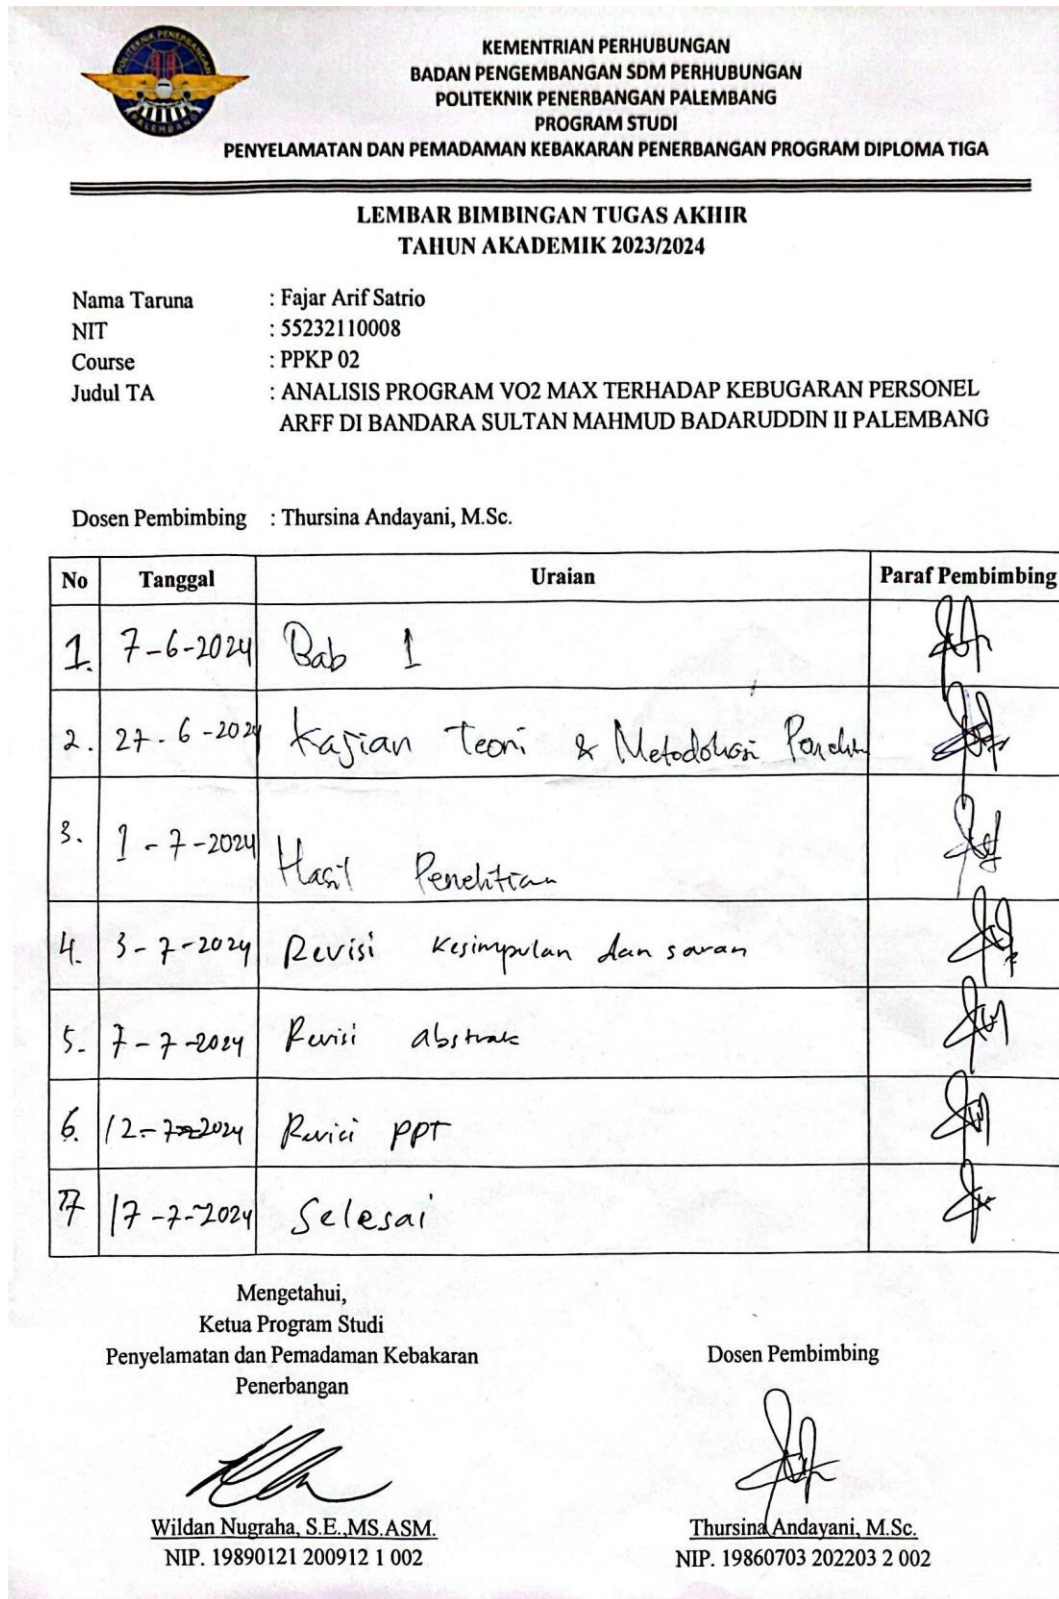 POLITEKNIK PENERBANGAN
PALEMBANG
KEMENTRIAN PERHUBUNGAN
BADAN PENGEMBANGAN SDM PERHUBUNGAN
POLITEKNIK PENERBANGAN PALEMBANG
PROGRAM STUDI
PENYELAMATAN DAN PEMADAMAN KEBAKARAN PENERBANGAN PROGRAM DIPLOMA TIGA
LEMBAR BIMBINGAN TUGAS AKHIR
TAHUN AKADEMIK 2023/2024
Nama Taruna : Fajar Arif Satrio
NIT : 55232110008
Course : PPKP 02
Judul TA : ANALISIS PROGRAM VO2 MAX TERHADAP KEBUGARAN PERSONEL
ARFF DI BANDARA SULTAN MAHMUD BADARUDDIN II PALEMBANG
Dosen Pembimbing : Thursina Andayani, M.Sc.
No Tanggal Uraian Paraf Pembimbing
1. 7-6-2024 Bab 1
2. 27-6-2024 Kajian Teori & Metodologi
3. 1-7-2024 Hasil Penelitian
4. 3-7-2024 Revisi Kesimpulan dan saran
5. 7-7-2024 Revisi abstrak
6. 12-7-2024 Revisi PPT
7 17-7-2024 Selesai
Mengetahui,
Ketua Program Studi
Penyelamatan dan Pemadaman Kebakaran
Penerbangan
Dosen Pembimbing
Wildan Nugraha, S.E.,MS.ASM.
NIP. 19890121 200912 1 002
Thursina Andayani, M.Sc.
NIP. 19860703 202203 2 002